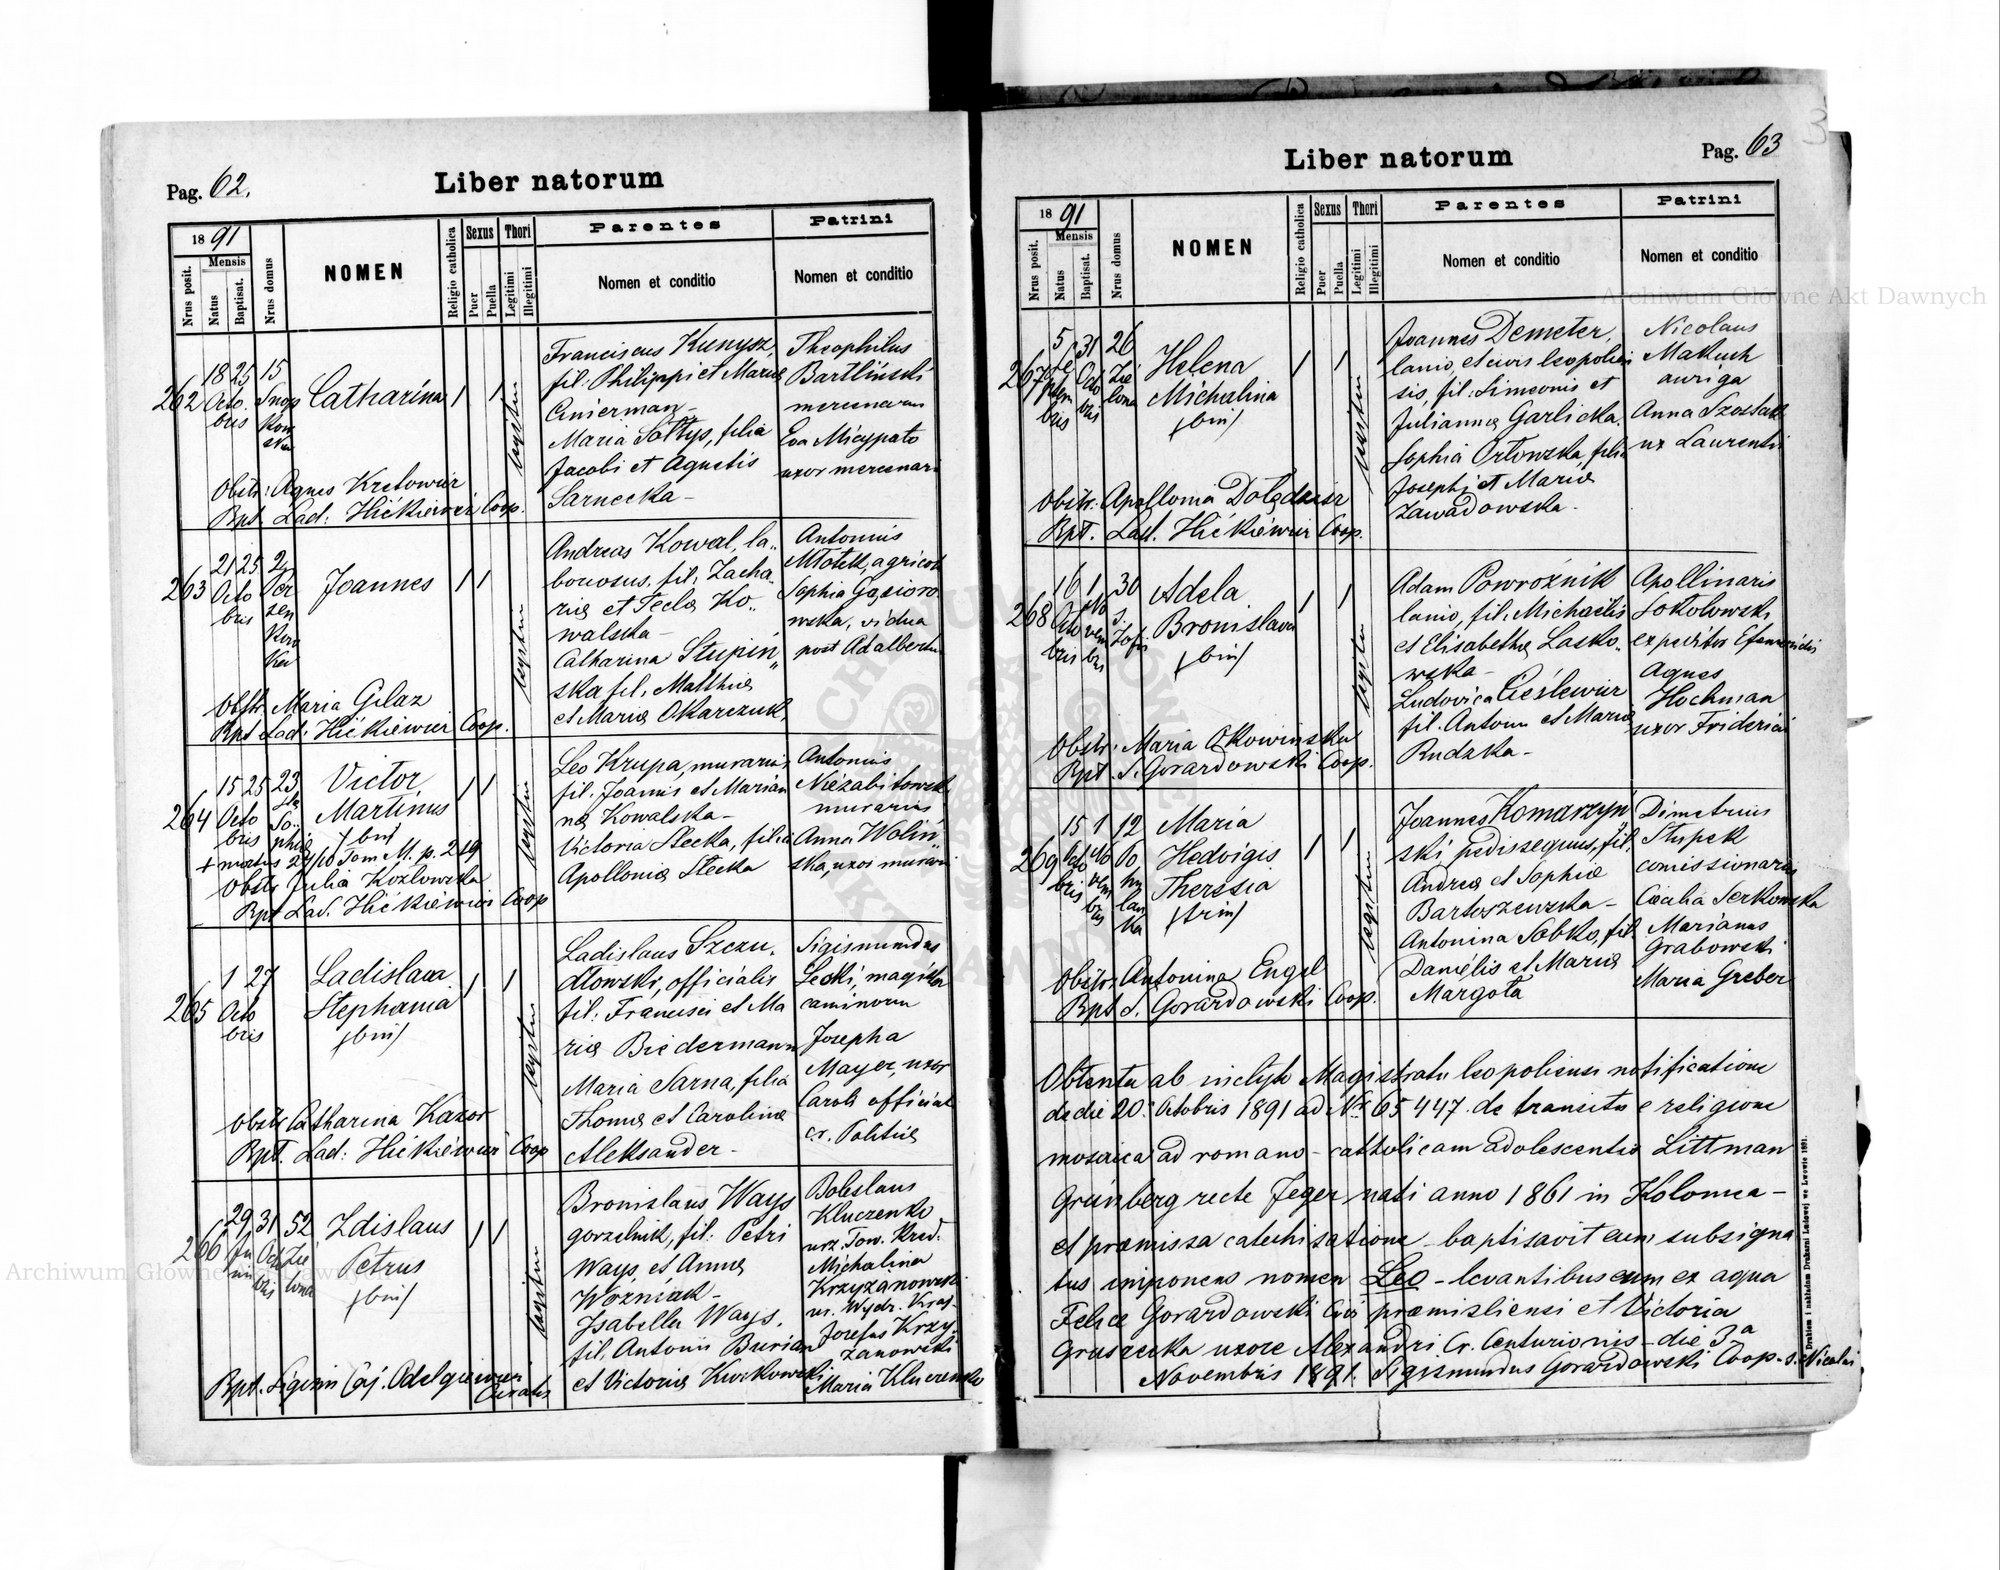 Pag. 62.
Liber natorum
1891
Mensis
Nrus posit.
Natus
Baptisat.
Nrus domus
NOMEN
Religio catholica
Sexus
Puer
Puella
Thori
Legitimi
Illegitimi
Parentes
Nomen et conditio
Patrini
Nomen et conditio
262
18 25 15
Octo
bris
Catharina
1 1
Franciscus Kunysz,
fil. Philippi et Mariæ
Maria Sołtys, filia
Jacobi et Agnetis
Sarnecka -
Theophilus
Bartliński
Eva
uxor mercenari
Obstr: Agnes Kretowicz
Bpt. Lad: Hićkiewicz Coop.
263
21 25 2
Octo
bris
Joannes
1 1
Andreas Kowal, la„
fil. Zacha„
riæ et Teclæ Ko„
walska -
Catharina Stupiń„
ska fil. Matthiæ
et Mariæ Okarczuk,
Antonius
Młotek, agricol
Sophia Gąsioro
wska, vidua
post Adalbertum
Obstr Maria Gilaz
Bpt Lad: Hićkiewicz Coop.
264
15 25 23
Octo
bris
Victor
Martinus
(bin)
1 1
+ mortuus 29/10 Tom M. p. 249
Leo Krupa, murarius
fil. Joannis et Marian
næ Kowalska -
Victoria Stecka, filia
Apolloniæ Stecka
Antonius
Niezabitowski
murarius
Anna Woliń„
ska, uxor murarii
Obstr Julia Kozłowska
Bpt Lad. Hićkiewicz Coop
265
1 27
Octo
bris
Ladislava
Stephania
(bin)
1 1
Ladislaus Szczu„
dłowski, officialis
fil. Francisci et Ma
riæ Biedermann
Maria Sarna, filia
Thomæ et Carolinæ
Aleksander -
Sigismundus
Lecki, magister
caminorum
Josepha
Mayer, uxor
Caroli official
cr. Politiæ
Obstr Catharina Kazor
Bpt. Lad: Hićkiewicz Coop
266
29 31 52
Zdislaus
Petrus
(bin)
1 1
Bronislaus Ways
gorzelnik, fil: Petri
Ways et Annæ
Woźniak -
Isabella Ways,
fil. Antonii Burian
et Victoriæ Kurkowski
Boleslaus
Kluczenko
urz. Tow. Kred.
Michalina
Krzyżanowski
ur. Wydz. Kraj.
Josefus Krzy„
żanowski
Maria Kluczenko
Pag. 63
Liber natorum
1891
Mensis
Nrus posit.
Natus
Baptisat.
Nrus domus
NOMEN
Religio catholica
Sexus
Puer
Puella
Thori
Legitimi
Illegitimi
Parentes
Nomen et conditio
Patrini
Nomen et conditio
267
5 31 26
Helena
Michalina
(bin)
1 1
Joannes Demeter,
lanio, et civis leopolien
sis, fil. Simeonis et
Juliannæ Garlicka.
Sophia Orłowska, filia
Josephi et Mariæ
Zawadowska -
Nicolaus
Makuch
auriga
Anna Szostak
ux Laurentii
Obstr. Apollonia Dołędzisz
Bpt. Lad. Hićkiewicz Coop.
268
16 1 30
Adela
Bronislava
(bin)
1 1
Adam Powroźnik
lanio, fil. Michaelis
et Elisabethæ Lasko„
wska -
Ludovica Cieślewicz
fil. Antonii et Mariæ
Rudzka -
Apollinaris
Sokołowski
expeditor
Agnes
Hochman
uxor Friderici
Obstr. Maria Okowińska
Bpt. S. Gorazdowski Coop.
269
15 1 12
Maria
Hedvigis
Theresia
(trin)
1 1
Joannes Komarzyń„
ski pedissequus, fil.
Andreæ et Sophiæ
Bartoszewska -
Antonina Sobko, fil.
Daniélis et Mariæ
Margota
Dimetrius
Stupek
comissionarius
Cæcilia Serkowska
Marianus
Grabowski
Maria Greber
Obstr. Antonina Engel
Bpt S. Gorazdowski Coop.
Obtenta ab inclyto Magistratu leopoliensi notificatione
de die 20. Octobris 1891 ad Nr 65447 de transitu e religione
mosaica ad romano-catholicam adolescentis Littman
Grünberg recte Jeger nati anno 1861 in Kolomea -
et præmissa catechisatione - baptisavit eum subsigna
tus imponens nomen Leo - levantibus eum ex aqua
Felice Gorazdowski Civi præmisliensi et Victoria
Gruszecka uxore Alexandri Cr. Centurionis - die 3ª
Novembris 1891. Sigismundus Gorazdowski Coop. s. Nicolai
Drukiem i nakładem Drukarni Ludowej we Lwowie 1891.
Archiwum Główne Akt Dawnych
Archiwum Główne Akt Dawnych